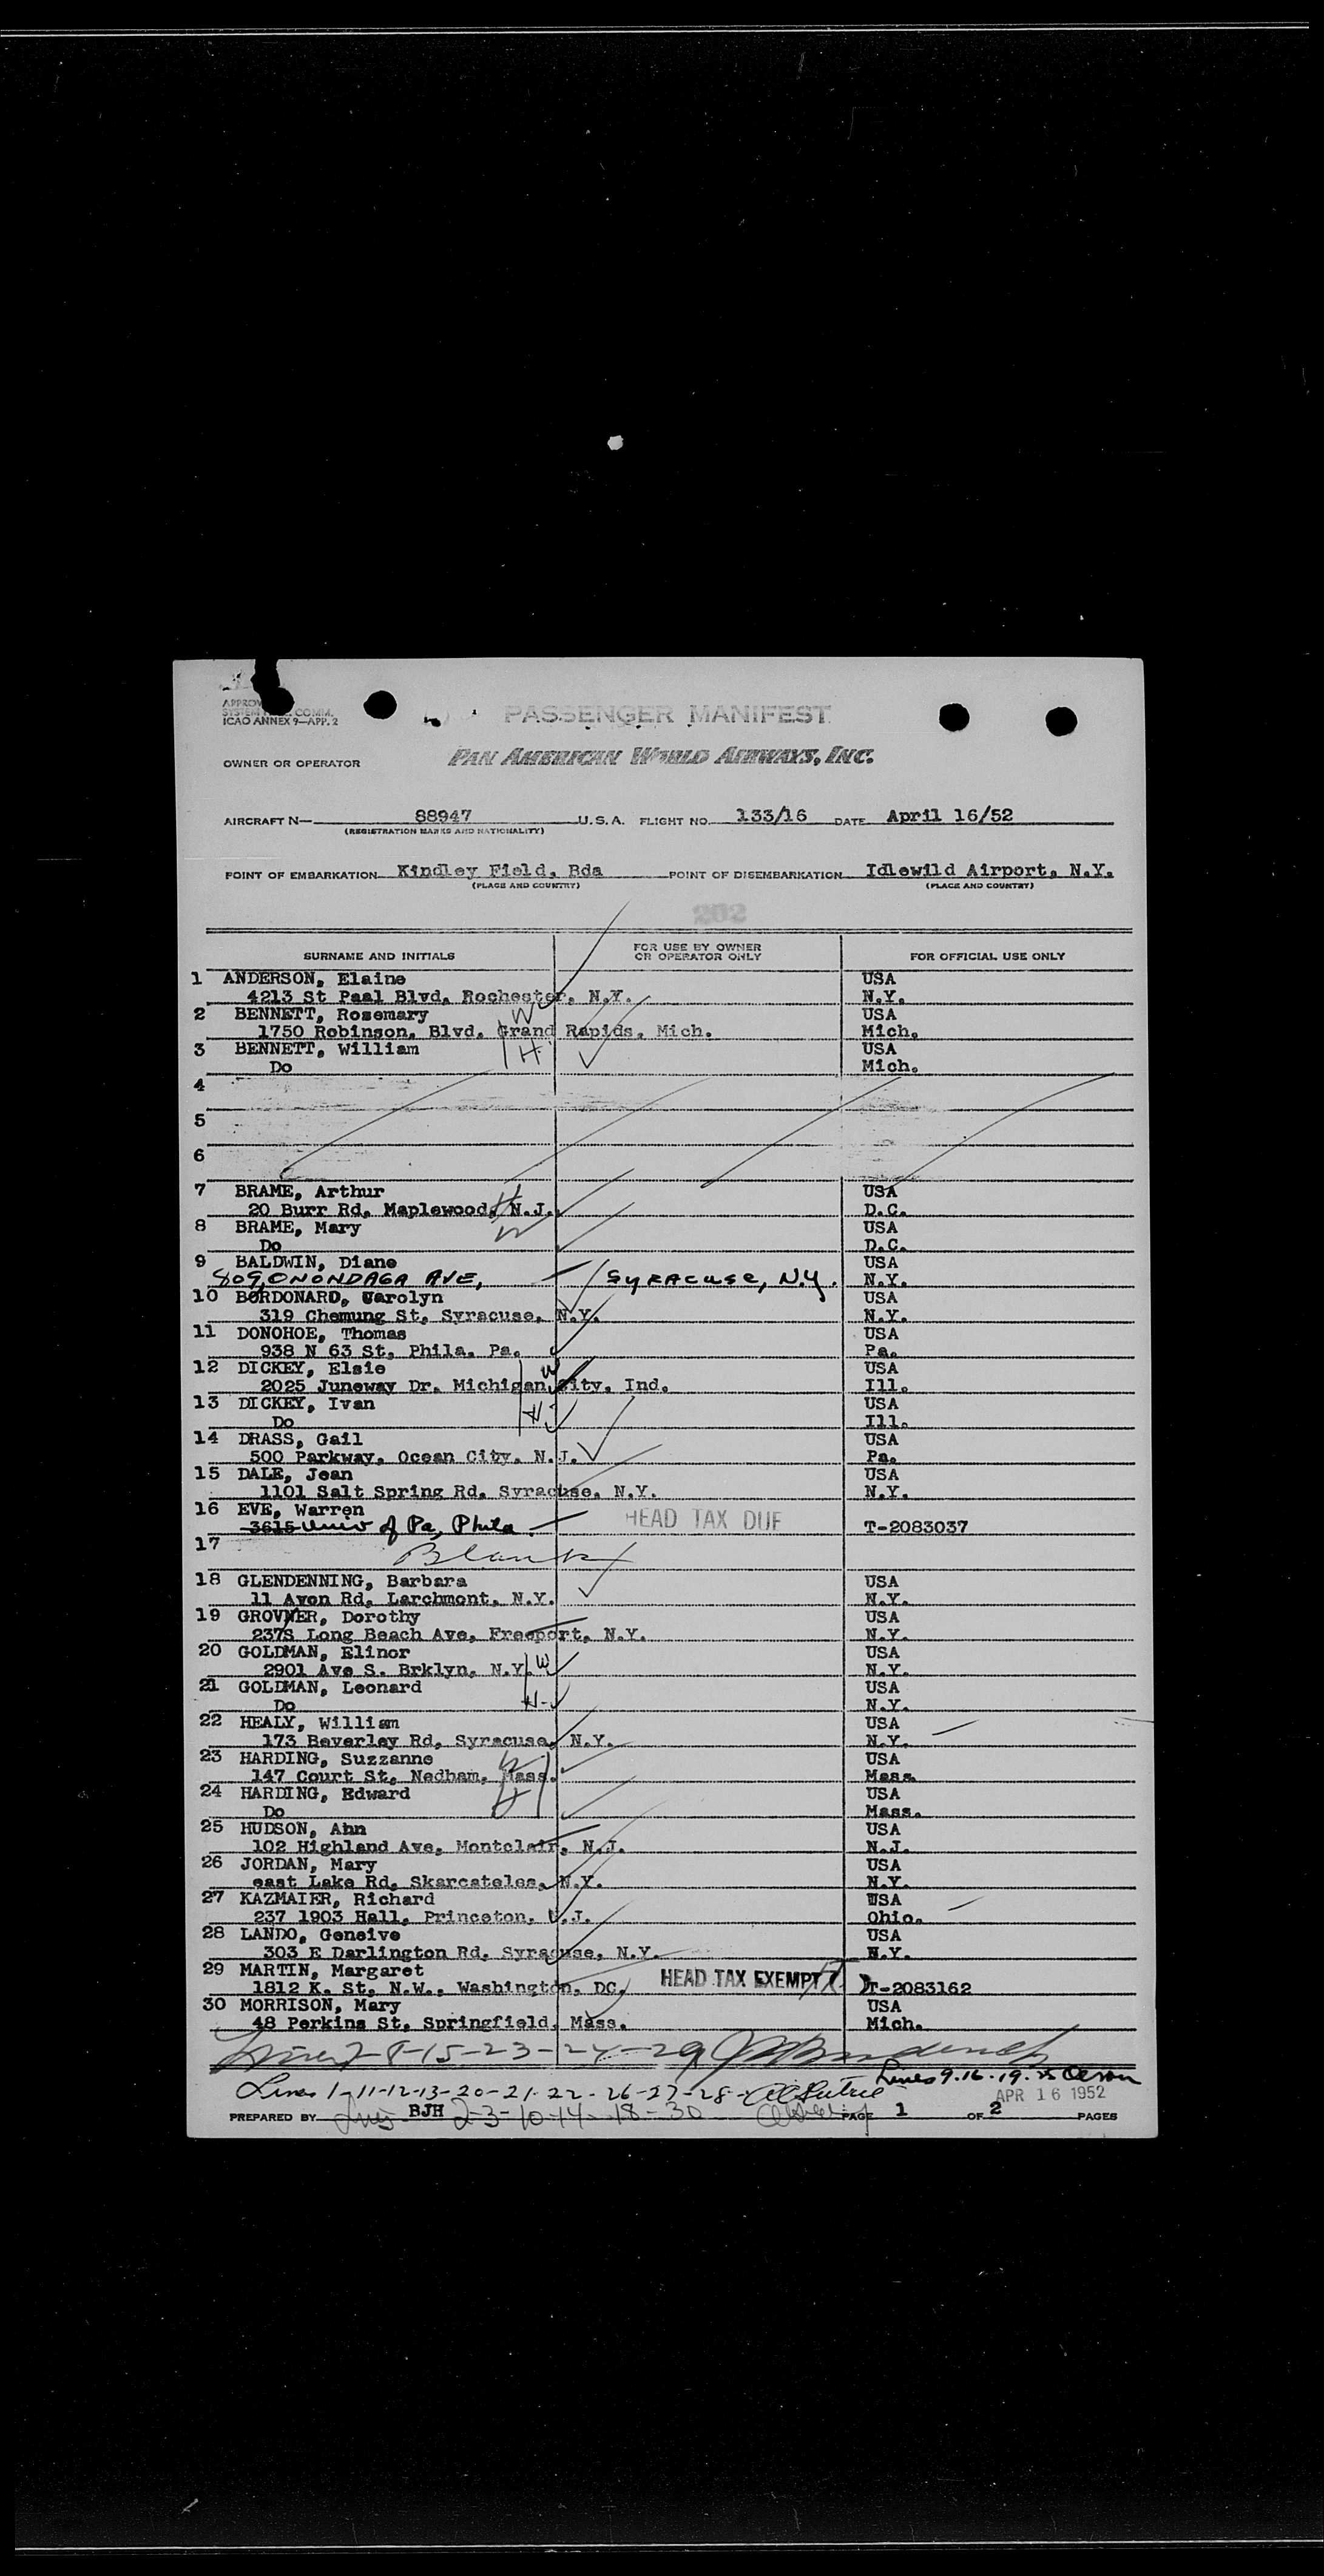 APPROV
SYSTEM COMM.
ICAO ANNEX 9—APP. 2
PASSENGER MANIFEST
OWNER OR OPERATOR PAN AMERICAN WORLD AIRWAYS, INC.
AIRCRAFT N— 88947 U.S.A. FLIGHT NO. 133/16 DATE April 16/52
(REGISTRATION MARKS AND NATIONALITY)
POINT OF EMBARKATION Kindley Field, Bda POINT OF DISEMBARKATION Idlewild Airport, N.Y.
(PLACE AND COUNTRY) (PLACE AND COUNTRY)
202
SURNAME AND INITIALS FOR USE BY OWNER OR OPERATOR ONLY FOR OFFICIAL USE ONLY
1 ANDERSON, Elaine USA
4213 St Paal Blvd, Rochester, N.Y. N.Y.
2 BENNETT, Rosemary W USA
1750 Robinson, Blvd, Grand Rapids, Mich. Mich.
3 BENNETT, William H USA
Do Mich.
4
5
6
7 BRAME, Arthur H USA
20 Burr Rd, Maplewood, N.J. D.C.
8 BRAME, Mary W USA
Do D.C.
9 BALDWIN, Diane USA
809 ONONDAGA AVE, SYRACUSE, N.Y. N.Y.
10 BORDONARD, Carolyn USA
319 Chemung St, Syracuse, N.Y. N.Y.
11 DONOHOE, Thomas USA
938 N 63 St, Phila. Pa. Pa.
12 DICKEY, Elsie W USA
2025 Juneway Dr. Michigan City, Ind. Ill.
13 DICKEY, Ivan H USA
Do Ill.
14 DRASS, Gail USA
500 Parkway, Ocean City, N.J. Pa.
15 DALE, Jean USA
1101 Salt Spring Rd, Syracuse, N.Y. N.Y.
16 EVE, Warren
3615 Univ of Pa, Phila. HEAD TAX DUE T-2083037
17 Blank
18 GLENDENNING, Barbara USA
11 Avon Rd, Larchmont, N.Y. N.Y.
19 GROVNER, Dorothy USA
237S Long Beach Ave, Freeport, N.Y. N.Y.
20 GOLDMAN, Elinor W USA
2901 Ave S. Brklyn, N.Y. N.Y.
21 GOLDMAN, Leonard H USA
Do N.Y.
22 HEALY, William USA
173 Beverley Rd, Syracuse, N.Y. N.Y.
23 HARDING, Suzzanne W USA
147 Court St, Nedham, Mass. Mass.
24 HARDING, Edward H USA
Do Mass.
25 HUDSON, Ann USA
102 Highland Ave, Montclair, N.J. N.J.
26 JORDAN, Mary USA
east Lake Rd, Skarcateles, N.Y. N.Y.
27 KAZMAIER, Richard USA
237 1903 Hall, Princeton, N.J. Ohio.
28 LANDO, Geneive USA
303 E Darlington Rd, Syracuse, N.Y. N.Y.
29 MARTIN, Margaret HEAD TAX EXEMPT
1812 K. St, N.W., Washington, DC, T-2083162
30 MORRISON, Mary USA
48 Perkins St, Springfield, Mass. Mich.
Lines 7-8-15-23-24-29
Lines 9-16-19-25
Lines 1-11-12-13-20-21-22-26-27-28-
APR 16 1952
PREPARED BY BJH 2-3-10-14-18-30 PAGE 1 OF 2 PAGES